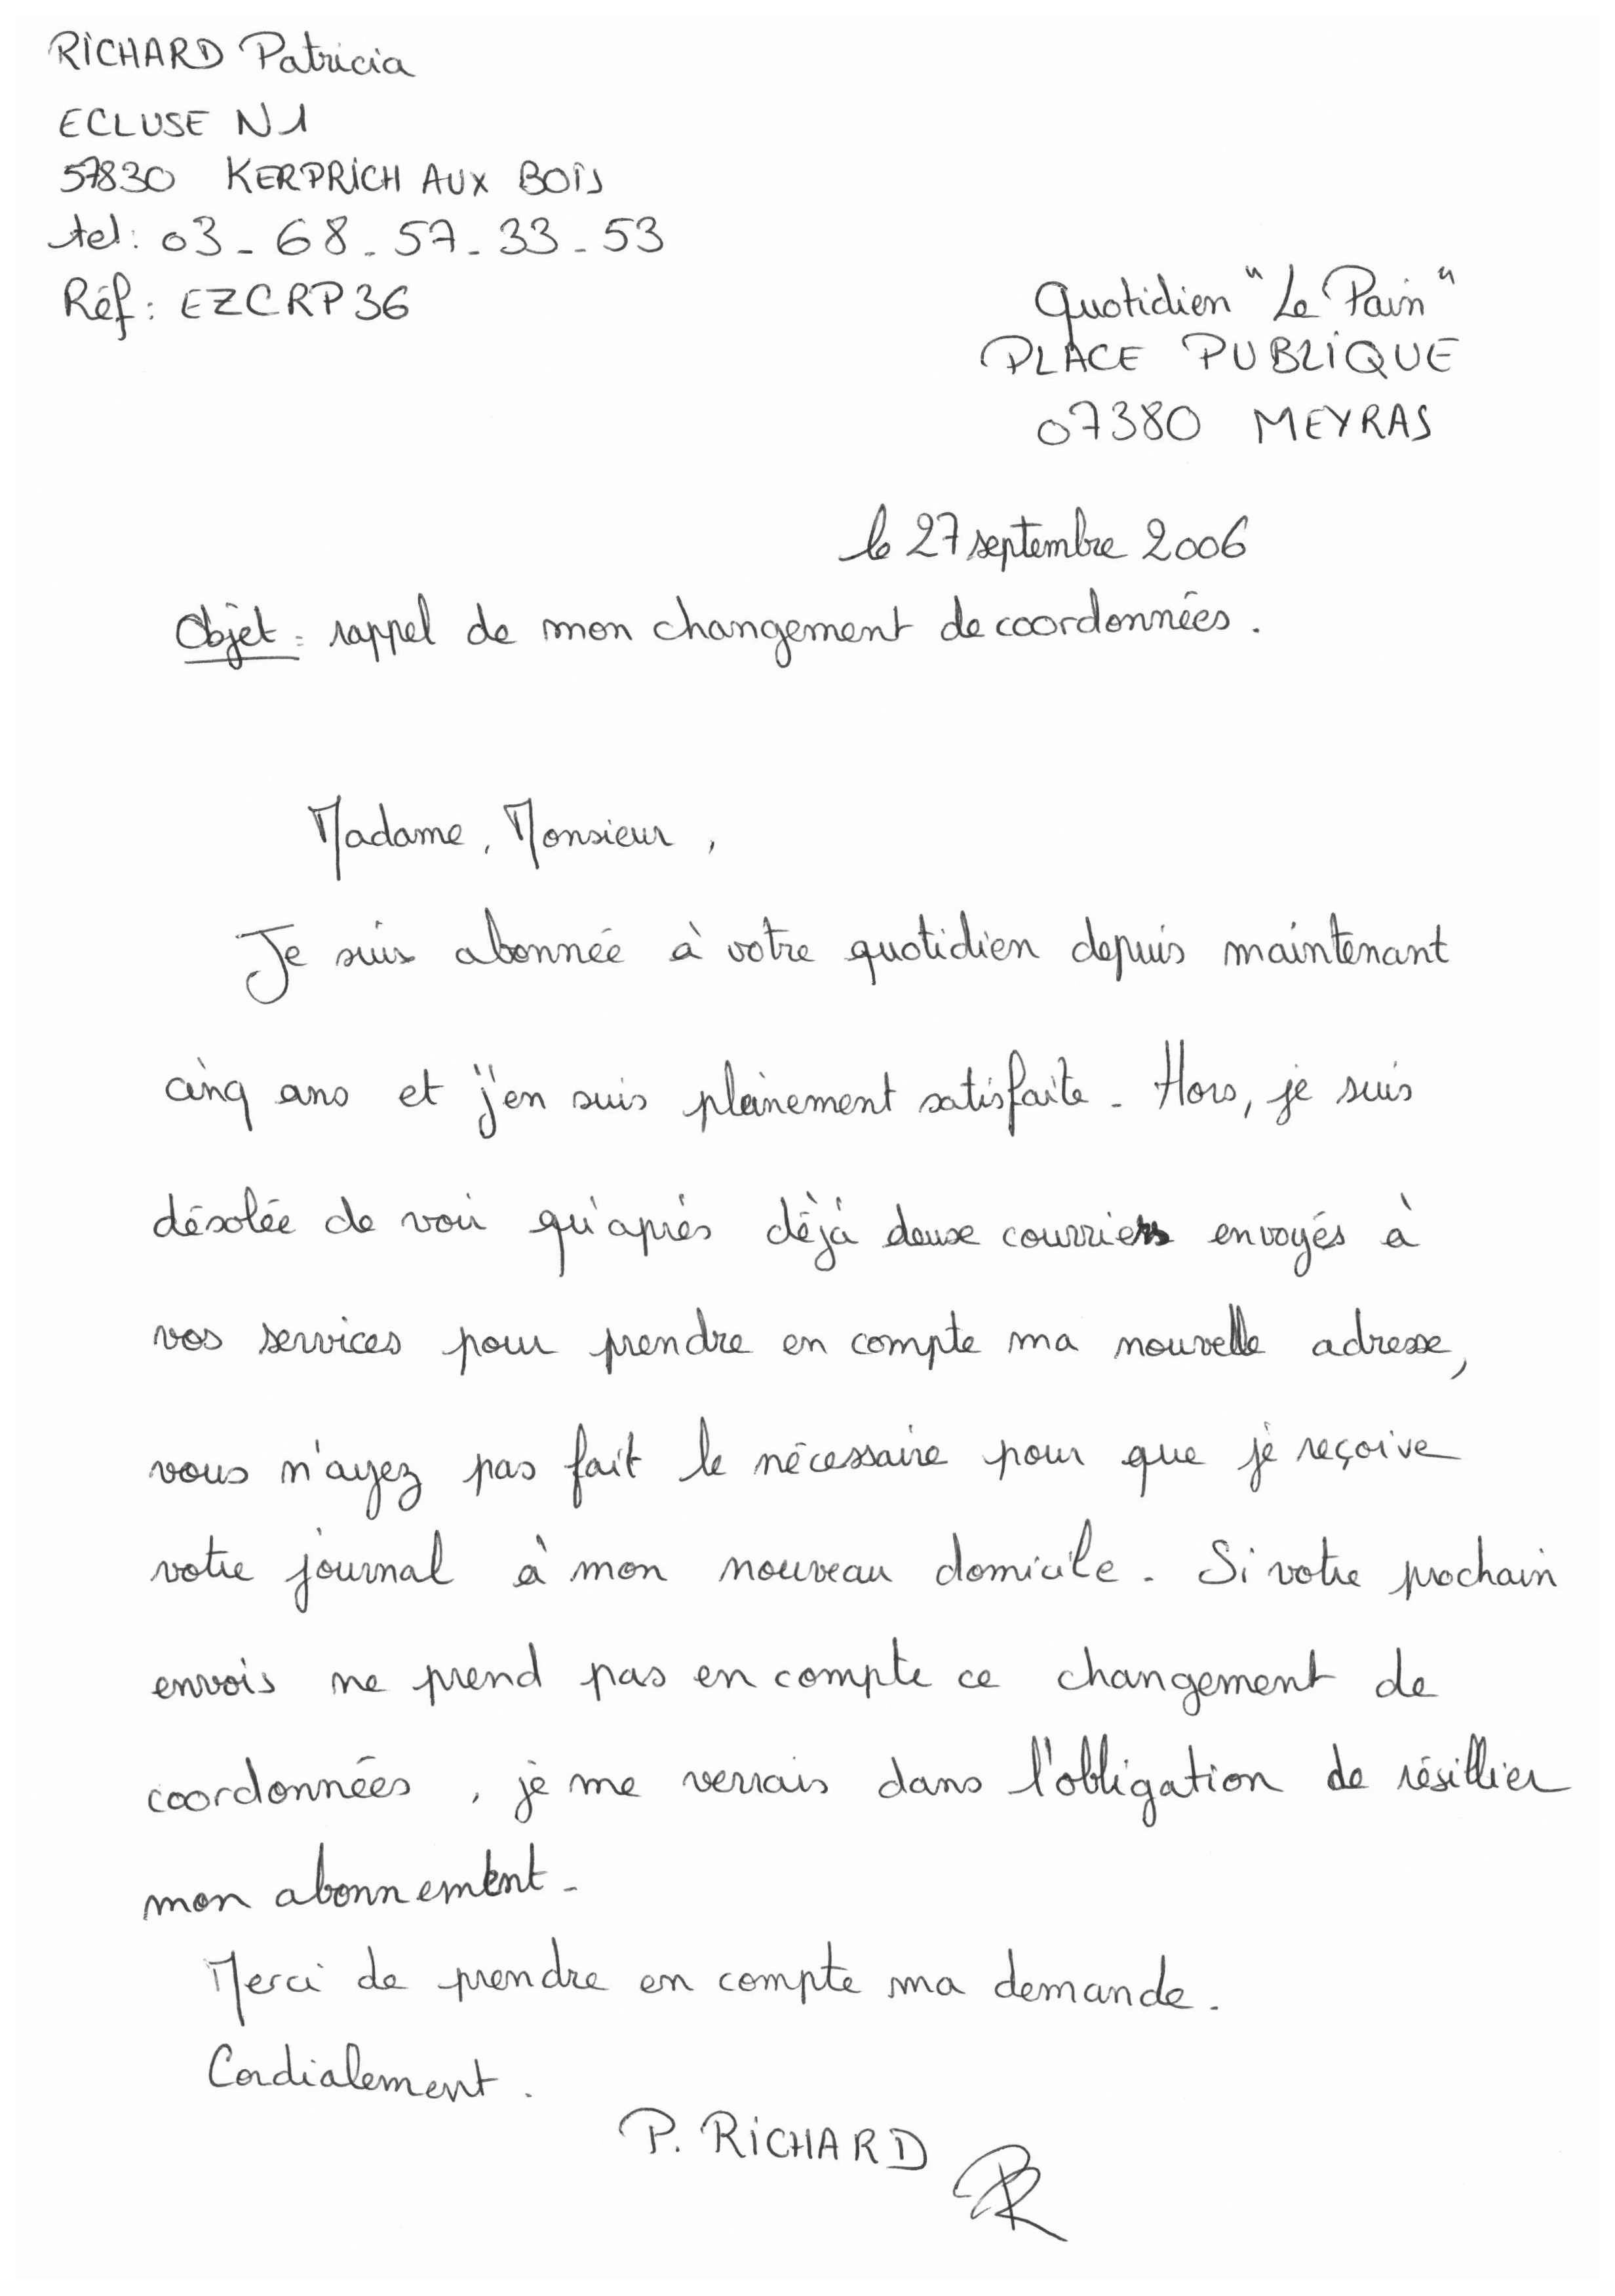 RICHARD Patricia
ECLUSE N1
57830 KERPRICH AUX BOIS
tel: 03-68-57-33-53
Réf: EZCRP36
Quotidien "Le Pain"
PLACE PUBLIQUE
07380 MEYRAS
le 27 septembre 2006
Objet: rappel de mon changement de coordonnées.
Madame, Monsieur,
Je suis abonnée à votre quotidien depuis maintenant
cinq ans et j'en suis pleinement satisfaite. Hors, je suis
désolée de voir qu'après déjà deux courriers envoyés à
vos services pour prendre en compte ma nouvelle adresse,
vous n'ayez pas fait le nécessaire pour que je reçoive
votre journal à mon nouveau domicile. Si votre prochain
envois ne prend pas en compte ce changement de
coordonnées, je me verrais dans l'obligation de résillier
mon abonnement.
Merci de prendre en compte ma demande.
Cordialement.
P. RICHARD
PR